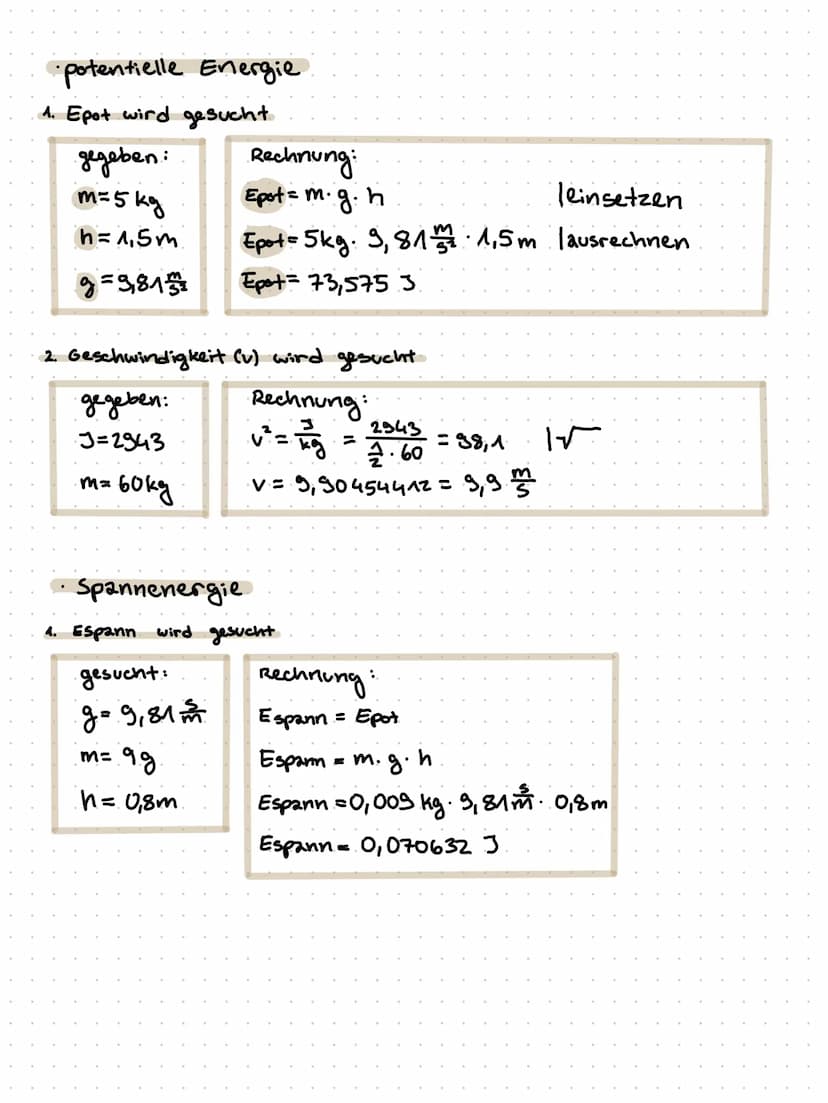 · potentielle Energie
1. Epot wird gesucht
gegeben:
m=5 kg
h=1,5m
g=9,81 m/s²
Rechnung:
Epot = m·g·h |einsetzen
Epot = 5kg · 9,81 m/s² · 1,5m |ausrechnen
Epot = 73,575 J
2. Geschwindigkeit (v) wird gesucht
gegeben:
J=2943
m=60kg
Rechnung:
v² = J/kg = 2943/(1/2 · 60) = 98,1 |√
v = 9,90454412 = 9,9 m/s
· Spannenergie
1. Espann wird gesucht
gesucht:
g= 9,81 s/m
m= 9g
h= 0,8m
Rechnung:
Espann = Epot
Espann = m·g·h
Espann = 0,009 kg · 9,81 s/m · 0,8m
Espann = 0,070632 J